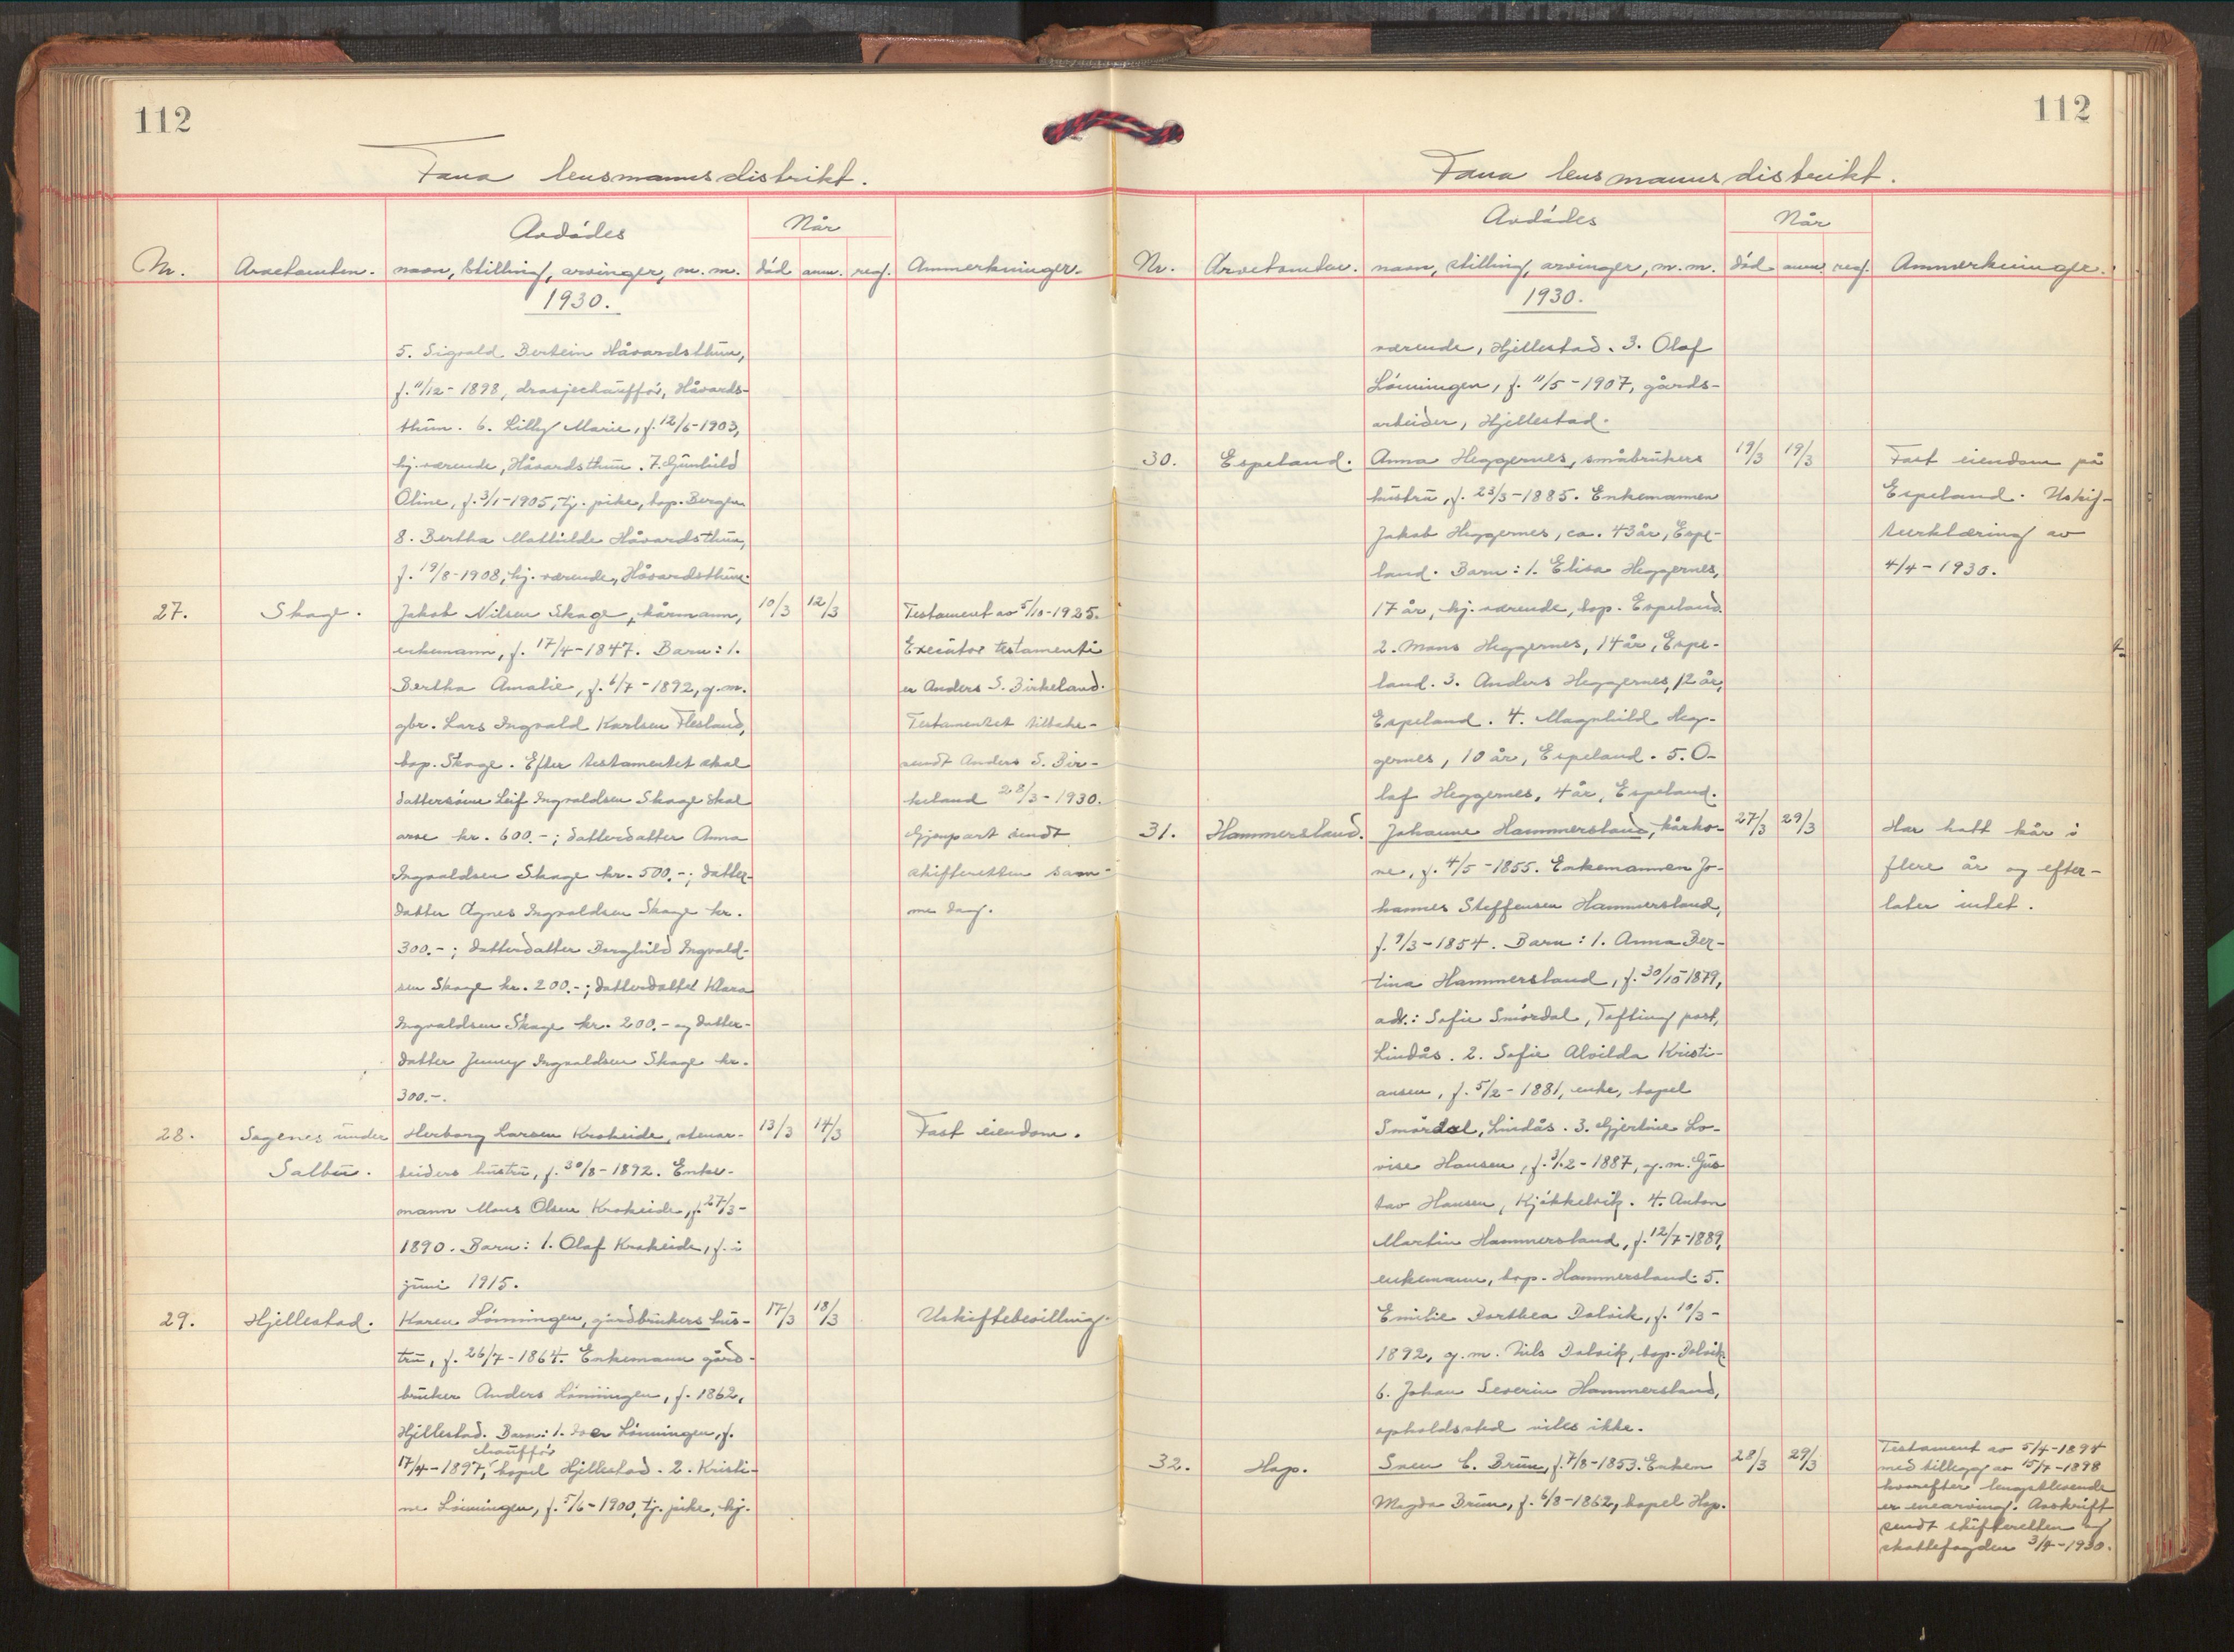 112
Fana lensmannsdistrikt.
Nr.
Arvetomten.
Avdødes
navn, stilling, arvinger, m. m.
Når
død anm. reg.
Anmerkninger.
1930.
5. Sigvald Bertein Håvardsthun,
f. 11/12-1898, drosjechauffør, Håvards-
thun. 6. Lilly Marie, f. 12/6-1903,
hj. værende, Håvardsthun. 7. Gunhild
Oline, f. 3/1-1905, tj. pike, bop. Bergen
8. Bertha Mathilde Håvardsthun,
f. 19/8-1908, hj. værende, Håvardsthun.
27. Skage. Jakob Nilsen Skage, kårmann, 10/3 12/3 Testament av 5/10-1925.
enkemann, f. 17/4-1847. Barn: 1. Executor testamenti
Bertha Amalie, f. 6/7-1892, g. m. er Anders S. Birkeland.
gbr. Lars Ingvald Karlsen Flesland, Testamentet tilbake-
bop. Skage. Efter testamentet skal sendt Anders S. Bir-
dattersønn Leif Ingvaldsen Skage skal keland 28/3-1930.
arve kr. 600.-; datterdatter Anna Gjenpart sendt
Ingvaldsen Skage kr. 500.-; datter- skifteretten sam-
datter Agnes Ingvaldsen Skage kr. me dag.
300.-; datterdatter Borghild Ingvald-
sen Skage kr. 200.-; datterdatter Klara
Ingvaldsen Skage kr. 200.- og datter-
datter Jenny Ingvaldsen Skage kr.
300.-.
28. Sagenes under Herborg Larsen Krokeide, stenar- 13/3 14/3 Fast eiendom.
Salbu. beiders hustru, f. 30/8-1892. Enke-
mann Mons Olsen Krokeide, f. 27/3-
1890. Barn: 1. Olaf Krokeide, f. i
juni 1915.
29. Hjellestad. Karen Lønningen, gårdbrukers hus- 17/3 18/3 Uskiftebevilling.
tru, f. 26/7-1864. Enkemann gård-
bruker Anders Lønningen, f. 1862,
Hjellestad. Barn: 1. Iver Lønningen, f.
chauffør
17/4-1897, bopel Hjellestad. 2. Kristi-
ne Lønningen, f. 5/6-1900, tj. pike, hj.
112
Fana lensmannsdistrikt.
Nr.
Arvetomten.
Avdødes
navn, stilling, arvinger, m. m.
Når
død anm. reg.
Anmerkninger.
1930.
værende, Hjellestad. 3. Olaf
Lønningen, f. 11/5-1907, gårds-
arbeider, Hjellestad.
30. Espeland. Anna Heggernes, småbrukers 19/3 19/3 Fast eiendom på
hustru, f. 23/3-1885. Enkemannen Espeland. Uskif-
Jakob Heggernes, ca. 43 år, Espe- teerklæring av
land. Barn: 1. Elisa Heggernes, 4/4-1930.
17 år, hj. værende, bop. Espeland.
2. Mons Heggernes, 14 år, Espe-
land. 3. Anders Heggernes, 12 år,
Espeland. 4. Magnhild Heg-
gernes, 10 år, Espeland. 5. O-
laf Heggernes, 4 år, Espeland.
31. Hammersland. Johanne Hammersland, kårko- 27/3 29/3 Har hatt kår i
ne, f. 4/5-1855. Enkemannen Jo- flere år og efter-
hannes Steffensen Hammersland, later intet.
f. 9/3-1854. Barn: 1. Anna Ber-
tina Hammersland, f. 30/10 1879,
adr.: Sofie Smørdal, Tofting post,
Lindås. 2. Sofie Alvilda Kristi-
ansen, f. 5/2-1881, enke, bopel
Smørdal, Lindås. 3. Gjertine Lo-
vise Hansen, f. 1/12-1887, g. m. Gus
tav Hansen, Kjøkkelvik. 4. Anton
Martin Hammersland, f. 12/7-1889,
enkemann, bop. Hammersland. 5.
Emilie Dorthea Dolvik, f. 10/3-
1892, g. m. Nils Dolvik, bop. Dolvik
6. Johan Severin Hammersland,
opholdssted vites ikke.
32. Hop. Sven C. Brun, f. 7/8-1853. Enken 28/3 29/3 Testament av 5/4-1894
Magda Brun, f. 6/8-1862, bopel Hop. med tillegg av 15/7-1898
hvorefter lengstlevende
er enearving. Avskrift
sendt skifteretten og
skattefogden 3/4-1930.